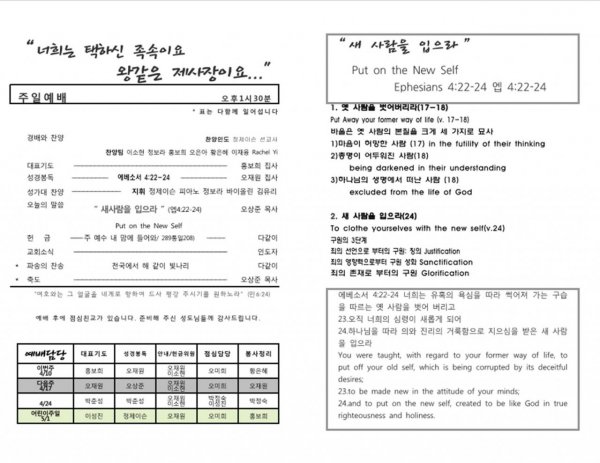 “너희는 택하신 족속이요
왕같은 제사장이요...”
주일예배 오후1시30분
* 표는 다함께 일어섭니다
경배와 찬양 찬양인도 정제이슨 선교사
찬양팀 이소현 정보라 홍보희 오은아 황은혜 이재용 Rachel Yi
대표기도 홍보희 집사
성경봉독 에베소서 4:22-24 오재원 집사
성가대 찬양 지휘 정제이슨 피아노 정보라 바이올린 김유리
오늘의 말씀 “ 새사람을 입으라 ” (엡4:22-24) 오상준 목사
Put on the New Self
헌 금 주 예수 내 맘에 들어와/ 289통일208) 다같이
교회소식 인도자
* 파송의 찬송 천국에서 해 같이 빛나리 다같이
* 축도 오상준 목사
“여호와는 그 얼굴을 네게로 향하여 드사 평강 주시기를 원하노라” (민6:24)
예배 후에 점심친교가 있습니다. 준비해 주신 성도님들께 감사드립니다.
예배담당 대표기도 성경봉독 안내/헌금위원 점심담당 봉사정리
이번주 4/10 홍보희 오재원 오재원 이소현 오미희 황은혜
다음주 4/17 오재원 오상준 오재원 이소현 오미희 오재원
4/24 박준성 박준성 오재원 이소현 박정숙 이성진 박정숙
어린이주일 5/1 이성진 정제이슨 오재원 오미희 홍보희
“ 새 사람을 입으라 ”
Put on the New Self
Ephesians 4:22-24 엡 4:22-24
1. 옛 사람을 벗어버리라(17-18)
Put Away your former way of life (v. 17-18)
바울은 옛 사람의 본질을 크게 세 가지로 묘사
1)마음이 허망한 사람 (17) in the futility of their thinking
2)총명이 어두워진 사람(18)
being darkened in their understanding
3)하나님의 생명에서 떠난 사람 (18)
excluded from the life of God
2. 새 사람을 입으라(24)
To clothe yourselves with the new self(v.24)
구원의 3단계
죄의 선언으로 부터의 구원: 칭의 Justification
죄의 영향력으로부터 구원 성화 Sanctification
죄의 존재로 부터의 구원 Glorification
에베소서 4:22-24 너희는 유혹의 욕심을 따라 썩어져 가는 구습
을 따르는 옛 사람을 벗어 버리고
23.오직 너희의 심령이 새롭게 되어
24.하나님을 따라 의와 진리의 거룩함으로 지으심을 받은 새 사람
을 입으라
You were taught, with regard to your former way of life, to
put off your old self, which is being corrupted by its deceitful
desires;
23.to be made new in the attitude of your minds;
24.and to put on the new self, created to be like God in true
righteousness and holiness.